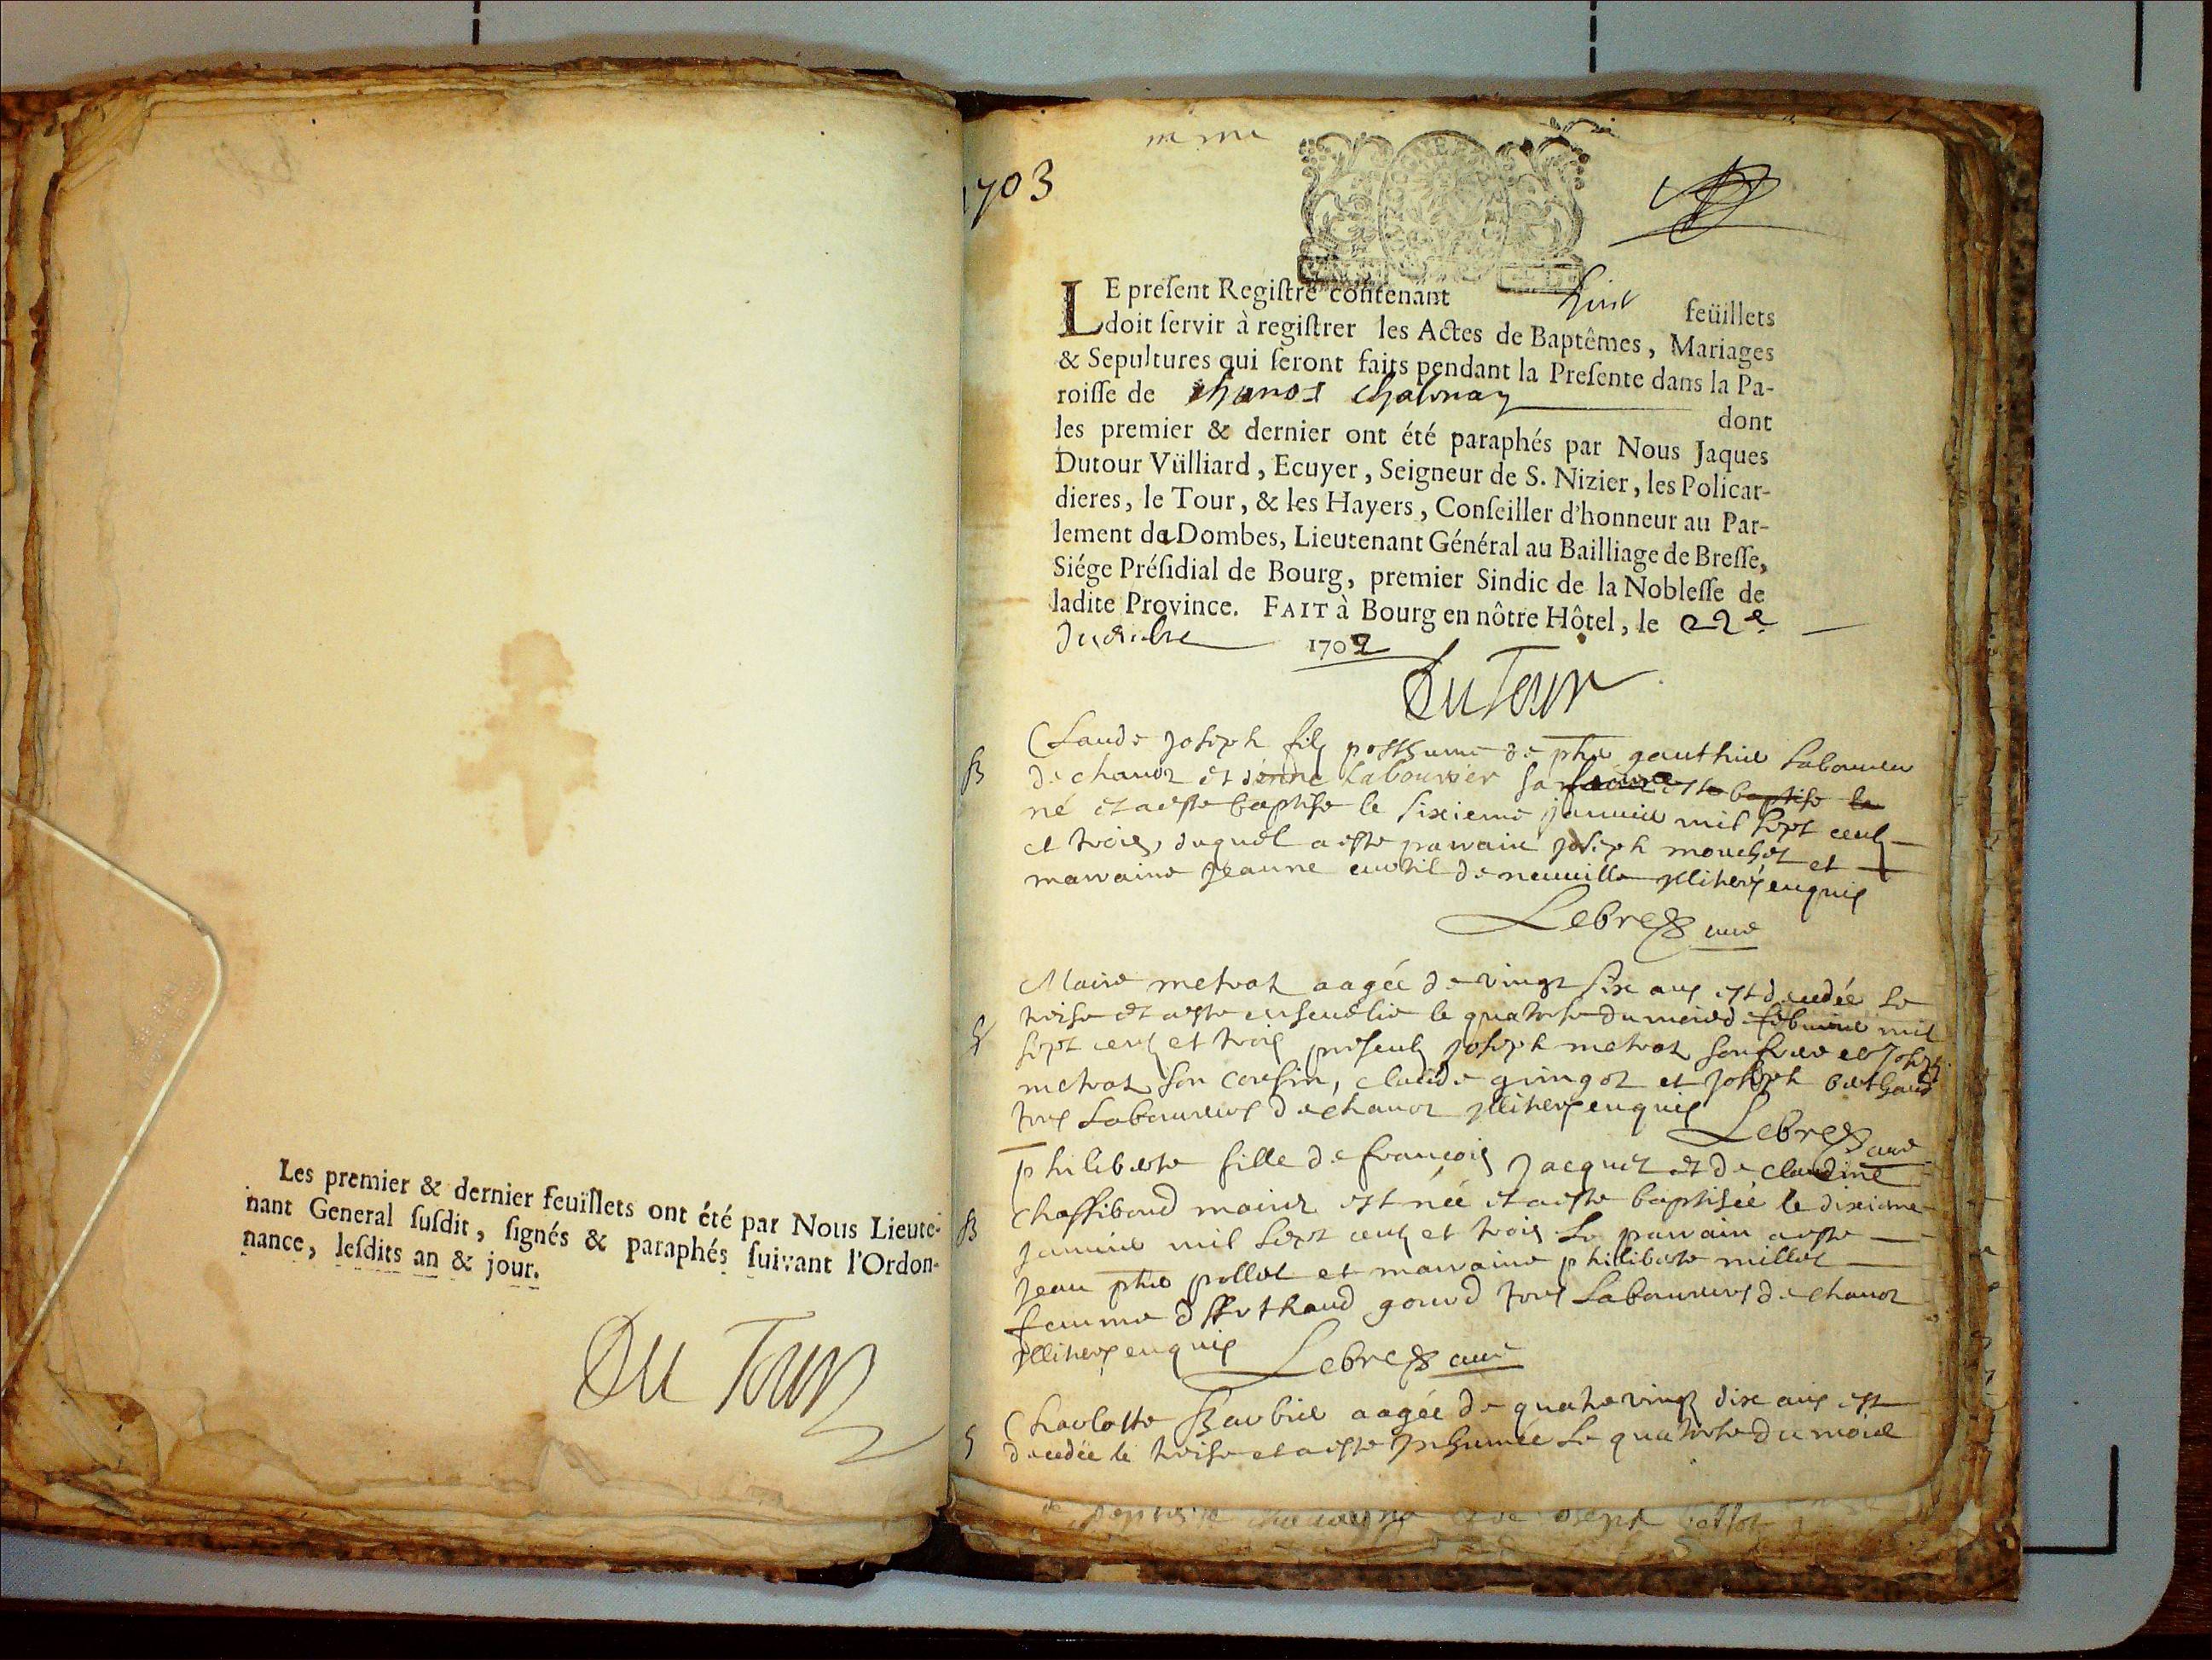 Les premier & dernier feuïllets ont été par Nous Lieute-
nant General ſuſdit, ſignés & paraphés ſuivant l'Ordon-
nance, leſdits an & jour.
Du Tour
1703
LE preſent Regiſtre contenant huit feüillets
doit ſervir à regiſtrer les Actes de Baptêmes, Mariages
& Sepultures qui ſeront faits pendant la Preſente dans la Pa-
roiſſe de chanos chatenay dont
les premier & dernier ont été paraphés par Nous Jaques
Dutour Vülliard, Ecuyer, Seigneur de S. Nizier, les Policar-
dieres, le Tour, & les Hayers, Conſeiller d'honneur au Par-
lement de Dombes, Lieutenant Général au Bailliage de Breſſe,
Siége Préſidial de Bourg, premier Sindic de la Nobleſſe de
ladite Province. FAIT à Bourg en nôtre Hôtel, le 22e
1702
Du Tour
Claude joseph fils posthume de phe gauthier laboureur
B
de chanoz et d'enne labourier sa baptise le
né et a este baptise le sixieme janvier mil sept cents
et trois, duquel a este parrain joseph mouchet et
marraine jeanne curtil de neuville illiterés enquis
Lebre curé
Marie metrat aagée de vingt six ans est decedée le
S
treise et a este ensevelie le quatorse du mois de febvrier mil
sept cents et trois presents joseph metrat son frere et joseph
metrat son cousin, claude guingot et joseph berthaud
tous laboureurs de chanoz illiterés enquis
Lebre curé
philiberte fille de francois jacquet et de claudine
B
chassiboud mariez est née et a este baptisée le dixieme
janvier mil sept cents et trois le parrain a este
jean phe pollet et marraine philiberte millet
femme d gourd tous laboureurs de chanoz
illiterés enquis
Lebre curé
S
Charlotte Barbier aagée de quatre vingt dix ans est
decedée le treise et a este inhumée le quatorse du mois